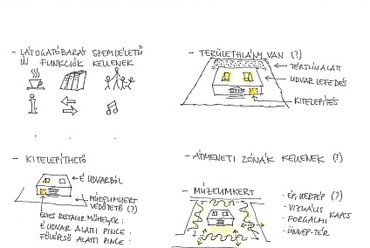 - LÁTOGATÓBARÁT SZEMLÉLETŰ
ÚJ FUNKCIÓK KELLENEK
- TERÜLETHIÁNY VAN (?)
TÉRSZÍN ALATT
UDVAR LEFEDÉS
KITELEPÍTÉS
- KITELEPÍTHETŐ
É UDVARBÓL
MÚZEUMKERT
VÉDŐTETŐ (?)
EGYES RESTAUR. MŰHELYEK:
É UDVAR ALATTI PINCE
FŐLÉPCSŐ ALATTI PINCE
- ÁTMENETI ZÓNÁK KELLENEK (?)
- MÚZEUMKERT
(?)
• VIZUÁLIS KAPCS
• FORGALMI
• ÜNNEP-TÉR